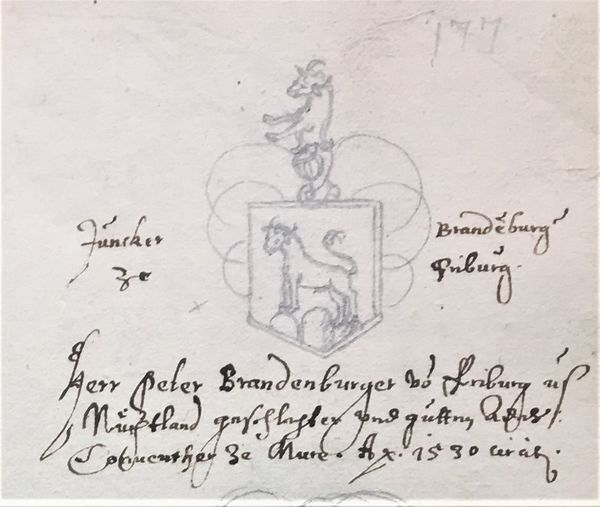 177
Juncker Brandeburg
ze Friburg.
Herr Peter Brandenburger vō Friburg us
Nüchtland geschlechter und gutten
Conuenther ze Mure. Ax. 1530